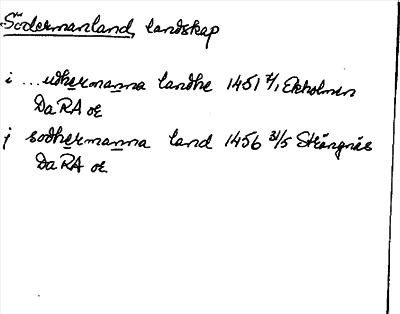 Södermanland, landskap
i ...udhermanna landhe 1451 7/1 Ekholmen
DaRA oe
j sodhermanna land 1456 3/5 Strängnäs
DaRA oe